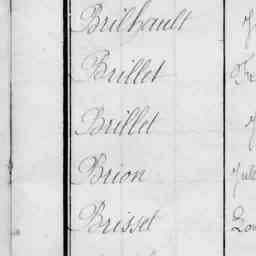 Brilhault
Brillet
Brillet
Brion
Brisset